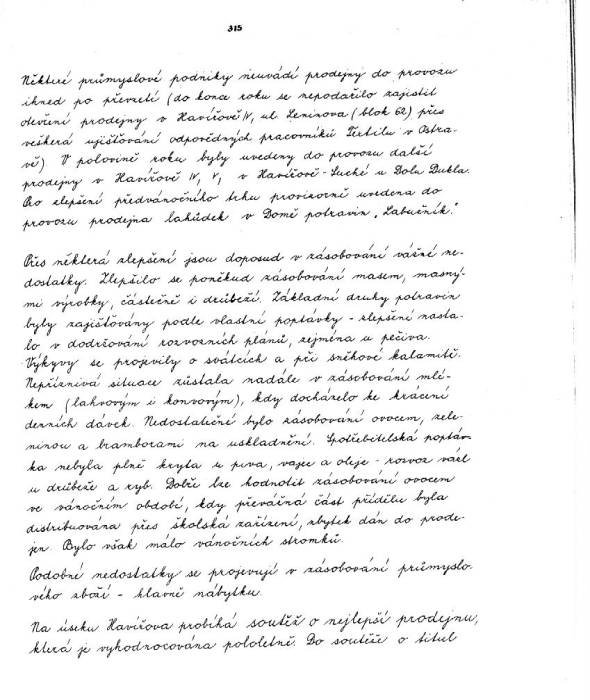 315
Některé průmyslové podniky neuvádí prodejny do provozu
ihned po převzetí (do konce roku se nepodařilo zajistit
otevření prodejny v Havířově IV, ul. Leninova (blok 62) přes
veškerá ujišťování odpovědných pracovníků Textilu v Ostra-
vě) V polovině roku byly uvedeny do provozu další
prodejny v Havířově IV, V, v Havířově-Suché u Dolu Dukla.
Pro zlepšení předvánočního trhu provizorně uvedena do
provozu prodejna lahůdek v Domě potravin „Labužník."
Přes některá zlepšení jsou doposud v zásobování vážné ne-
dostatky. Zlepšilo se poněkud zásobování masem, masný-
mi výrobky, částečně i drůbeží. Základní druhy potravin
byly zajišťovány podle vlastní poptávky - zlepšení nasta-
lo v dodržování rozvozních plánů, zejména u pečiva.
Výkyvy se projevily o svátcích a při sněhové kalamitě.
Nepříznivá situace zůstala nadále v zásobování mlé-
kem (lahvovým i konvovým), kdy docházelo ke krácení
denních dávek. Nedostatečné bylo zásobování ovocem, zele-
ninou a bramborami na uskladnění. Spotřebitelská poptáv-
ka nebyla plně kryta u piva, vajec a oleje - rozvoz vázl
u drůbeže a ryb. Dobře lze hodnotit zásobování ovocem
ve vánočním období, kdy převážná část přídělu byla
distribuována přes školská zařízení, zbytek dán do prode-
jen. Bylo však málo vánočních stromků.
Podobné nedostatky se projevují v zásobování průmyslo-
vého zboží - hlavně nábytku.
Na úseku Havířova probíhá soutěž o nejlepší prodejnu,
která je vyhodnocována pololetně. Do soutěže o titul